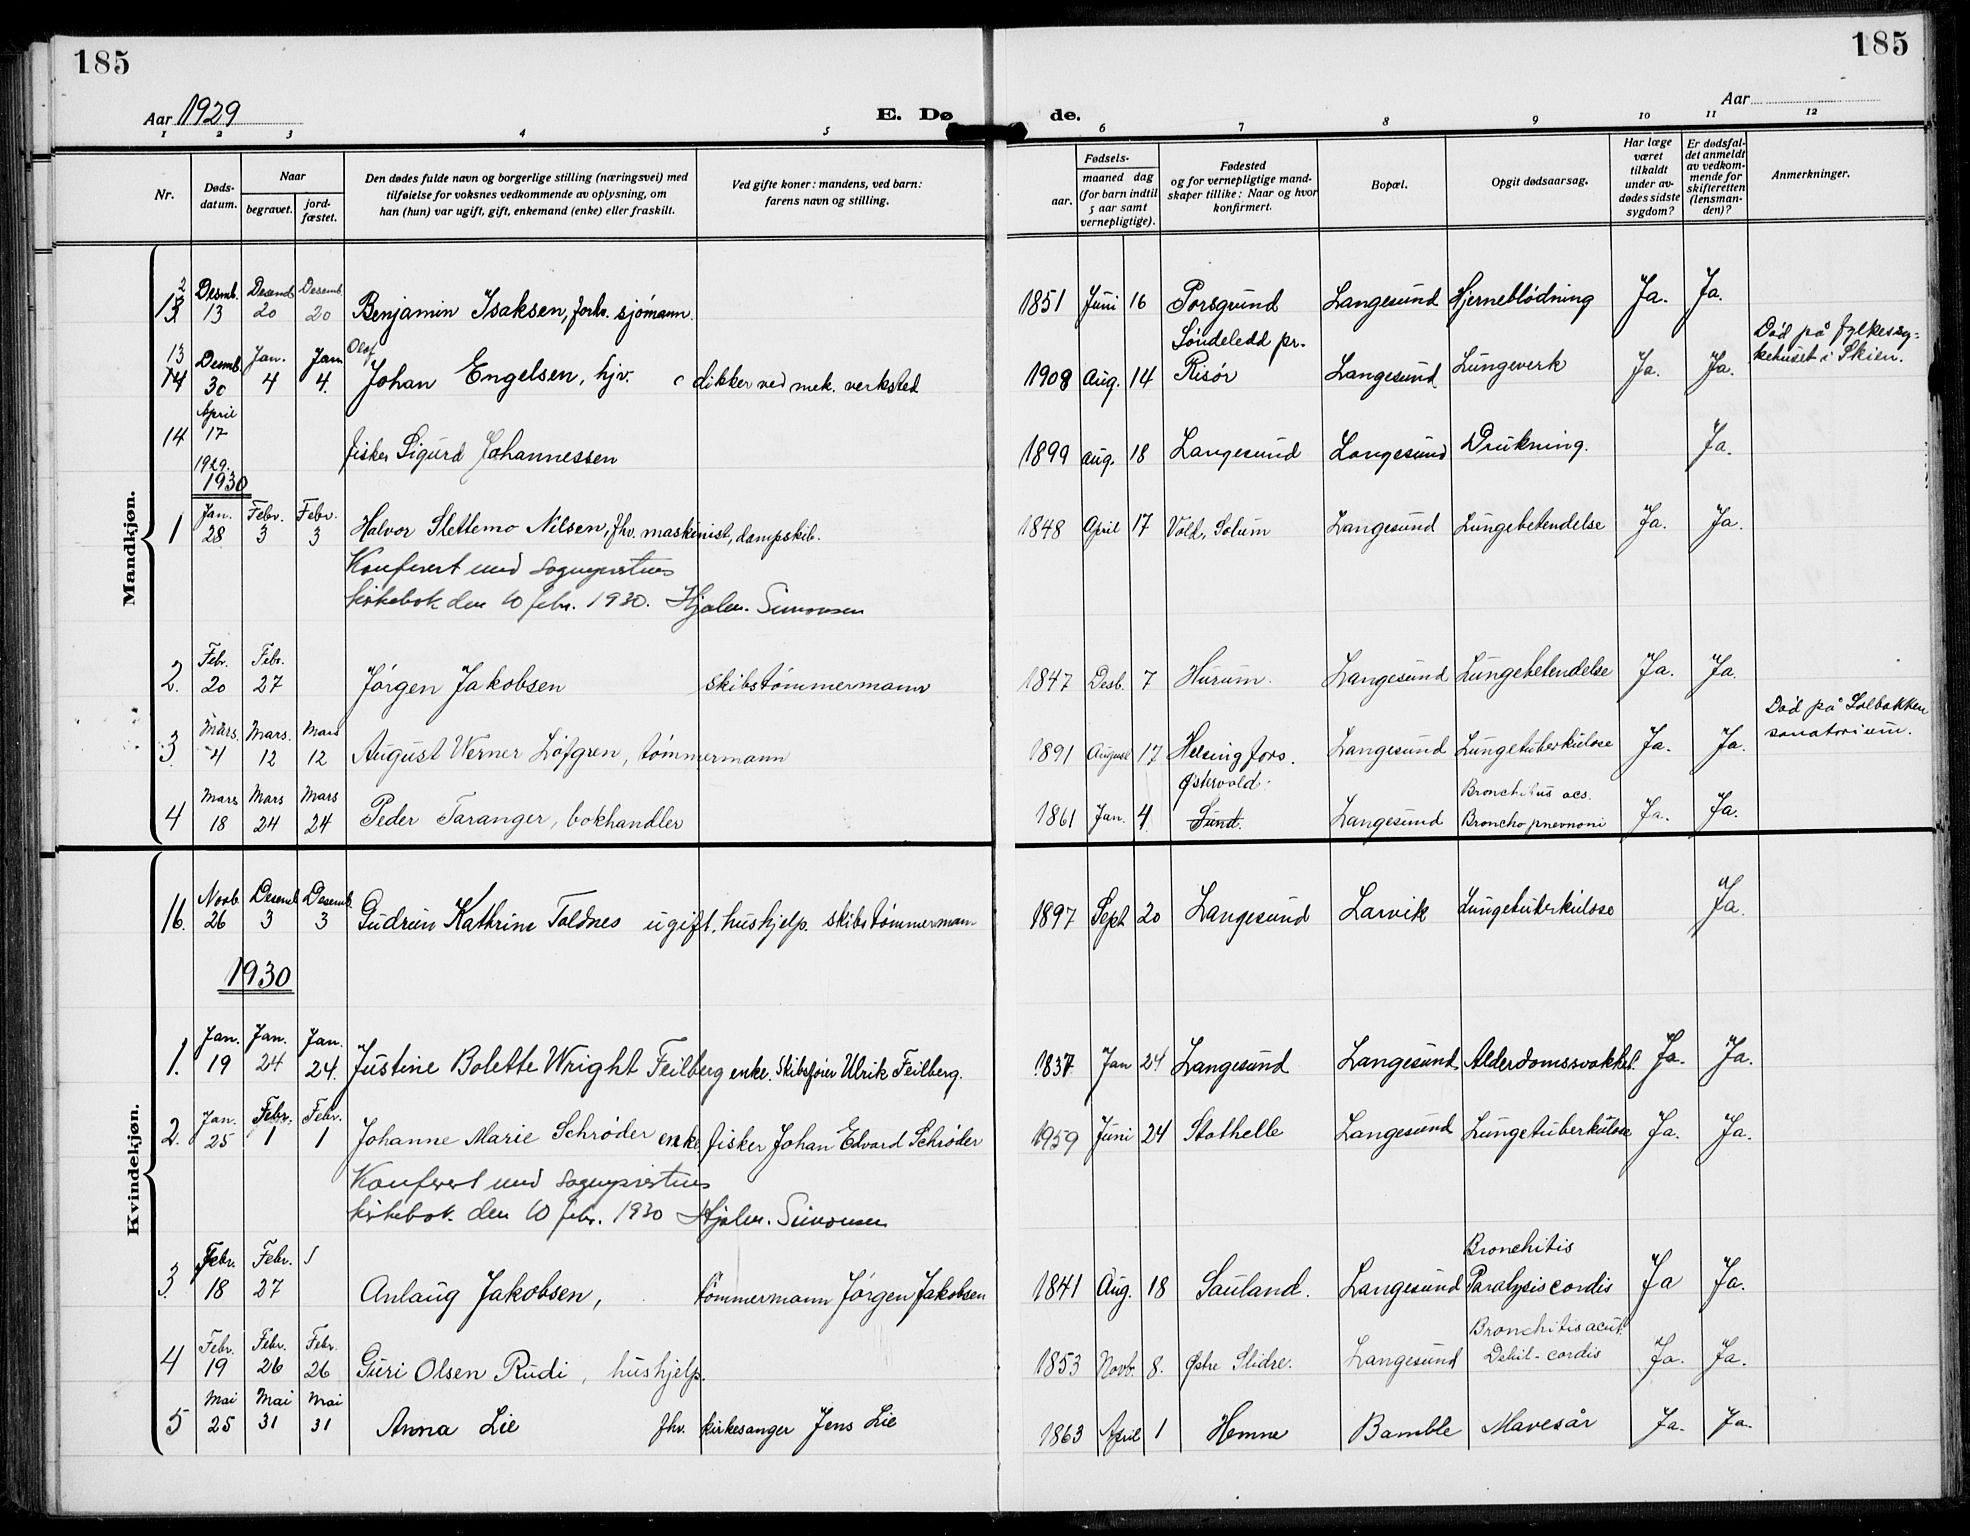 185
185
Aar 1929
E. Dø
de.
Aar
1 2 3 4 5 6 7 8 9 10 11 12
Nr.
Døds-
datum.
Naar
begravet.
jord-
fæstet.
Den dødes fulde navn og borgerlige stilling (næringsvei) med
tilføielse for voksnes vedkommende av oplysning, om
han (hun) var ugift, gift, enkemand (enke) eller fraskilt.
Ved gifte koner: mandens, ved barn:
farens navn og stilling.
Fødsels-
aar.
maaned dag
(for barn indtil
5 aar samt
vernepligtige).
Fødested
og for vernepligtige mand-
skaper tillike: Naar og hvor
konfirmert.
Bopæl.
Opgit dødsaarsag.
Har læge
været
tilkaldt
under av-
dødes sidste
sygdom?
Er dødsfal-
det anmeldt
av vedkom-
mende for
skifteretten
(lensman-
den)?
Anmerkninger.
Mandkjøn.
12 Desmb. 13 Desemb 20 Desemb. 20 Benjamin Isaksen, forhv. sjømann. 1851 Juni 16 Porsgrund Langesund Hjerneblødning Ja. Ja.
13 14 Desmb. 30 Jan. 4 Jan 4. Johan Olaf Engelsen, hjv. dikker ved mek. verksted 1908 Aug. 14 Søndeledd pr. Risør Langesund Lungeverk Ja. Ja. Død på fylkessy-
kehuset i Skien.
14 April 17 1929. fisker Sigurd Johannessen 1899 aug. 18 Langesund Langesund Drukning. Ja.
1930
1 Jan. 28 Febr. 3 Febr. 3 Halvor Slettemo Nilsen, fhv. maskinist, dampskib. 1848 April 17 Vold, Solum Langesund Lungebetendelse Ja. Ja.
Konferert med sogneprestens
kirkebok den 10 febr. 1930. Hjalm. Simonsen
2. Febr. 20 Febr. 27 Jørgen Jakobsen skibstømmermann 1847 Desb. 7 Hurum. Langesund Lungebetendelse Ja. Ja.
3. Mars 4 Mars. 12 Mars 12 August Werner Löfgren, tømmermann 1891 August 17 Helsingfors. Langesund Lungetuberkulose Ja. Ja. Død på Solbakken
sanatorium.
4 Mars 18 Mars 24 Mars 24 Peder Taranger, bokhandler 1861 Jan. 4. Østervold. Sund. Langesund Bronchitus acs.
Broncho pnevnoni Ja. Ja.
Kvindekjøn.
16. Novb. 26 Desemb 3 Desemb. 3 Gudrun Kathrine Toldnes ugift, hushjelp. skibstømmermann 1897 Sept 20 Langesund Larvik Lungetuberkulose Ja.
1930
1. Jan. 19 Jan. 24 Jan. 24. Justine Bolette Wright Feilberg enke. Skibsfører Ulrik Feilberg. 1837 Jan 24 Langesund Langesund Alderdomssvakhet. Ja. Ja.
2. Jan. 25 Febr. 1 Febr. 1 Johanne Marie Schrøder enke. fisker Johan Edvard Schrøder 1959 Juni 24 Stathelle Langesund Lungetuberkulose Ja. Ja.
Konferert med sogneprestens
kirkebok. den 10 febr. 1930 Hjalm. Simonsen
3. Febr. 18 Febr. 27 Anlaug Jakobsen, tømmermann Jørgen Jakobsen 1841 Aug. 18 Sauland. Langesund Bronchitis
Paralysis cordis Ja Ja.
4 Febr. 19 Febr. 26 Febr. 26 Guri Olsen Rudi, hushjelp. 1853 Novb. 8. Østre Slidre. Langesund Bronchitis acut.
Debil-cordis Ja. Ja.
5 Mai 25 Mai 31 Mai 31 Anna Lie fhv. kirkesanger Jens Lie 1863 April 1 Hemne Bamble Mavesår Ja. Ja.